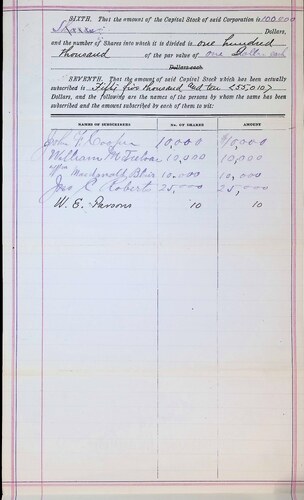 SIXTH. That the amount of the Capital Stock of said Corporation is 100.000
Dollars,
and the number of Shares into which it is divided is one hundred
thousand of the par value of one Dollar each
Dollars each
SEVENTH. That the amount of said Capital Stock which has been actually
subscribed is Fifty five thousand and ten ($55,010)
Dollars, and the following are the names of the persons by whom the same has been
subscribed and the amount subscribed by each of them to wit:
NAMES OF SUBSCRIBERS No. OF SHARES AMOUNT
John F. Cooper 10,000 $10,000
William M 10,000 10,000
Macdonald Blair 10.000 10,000
Jas. C. Roberts 25,000 25,000
W. E. Parsons 10 10